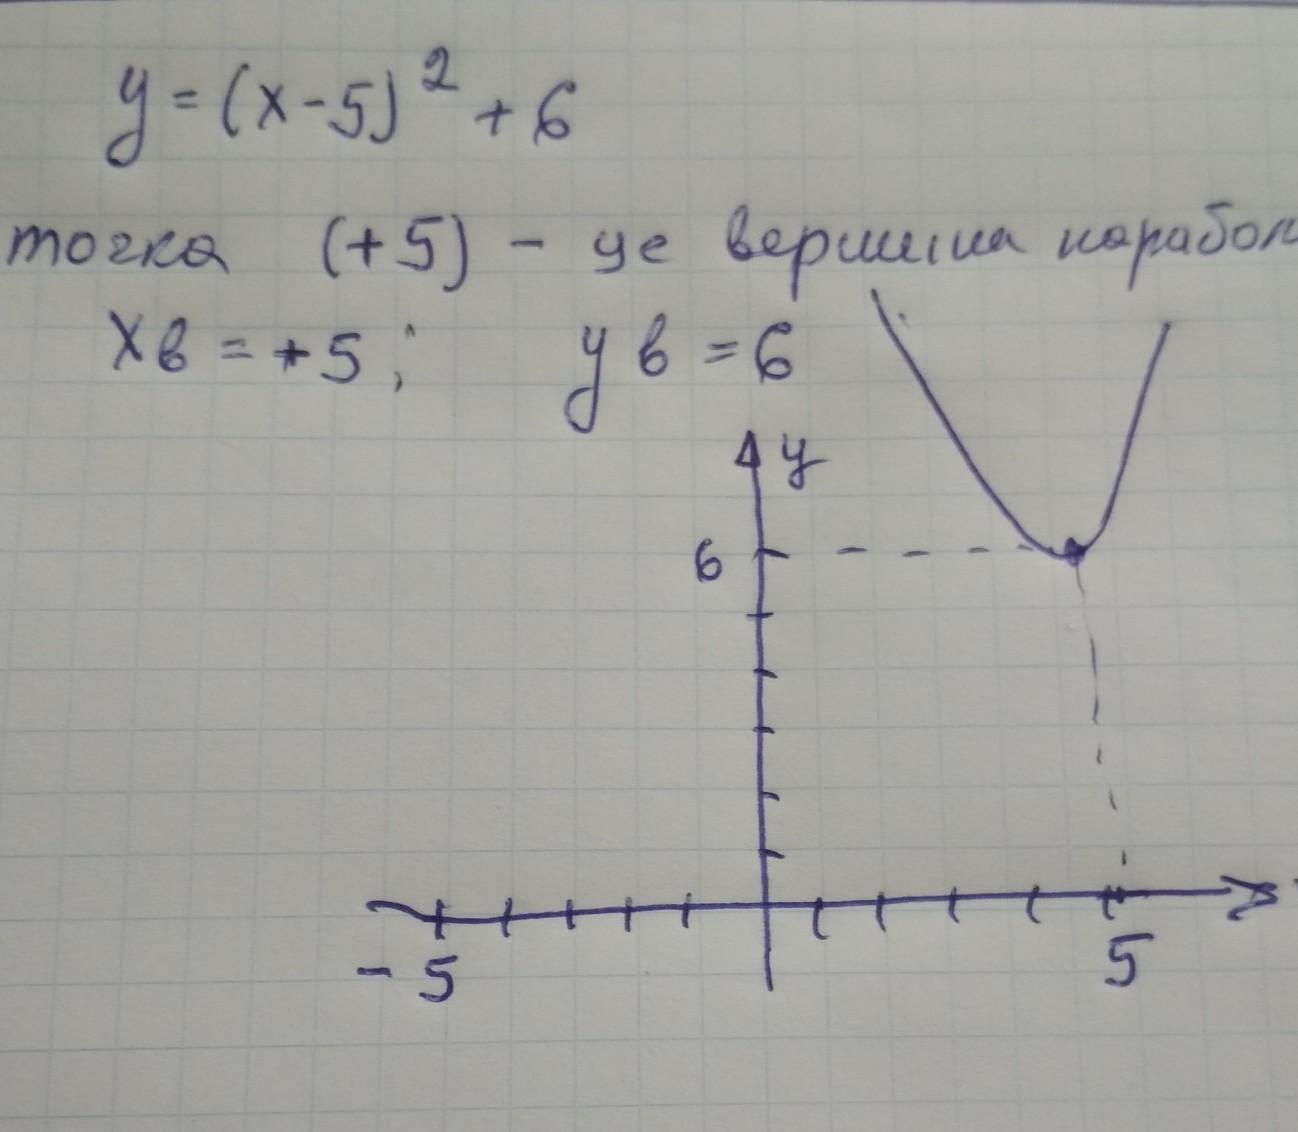 y = (x - 5)² + 6
точка (+5) - це вершина парабол
xв = +5; yв = 6
y
6
x
- 5 5